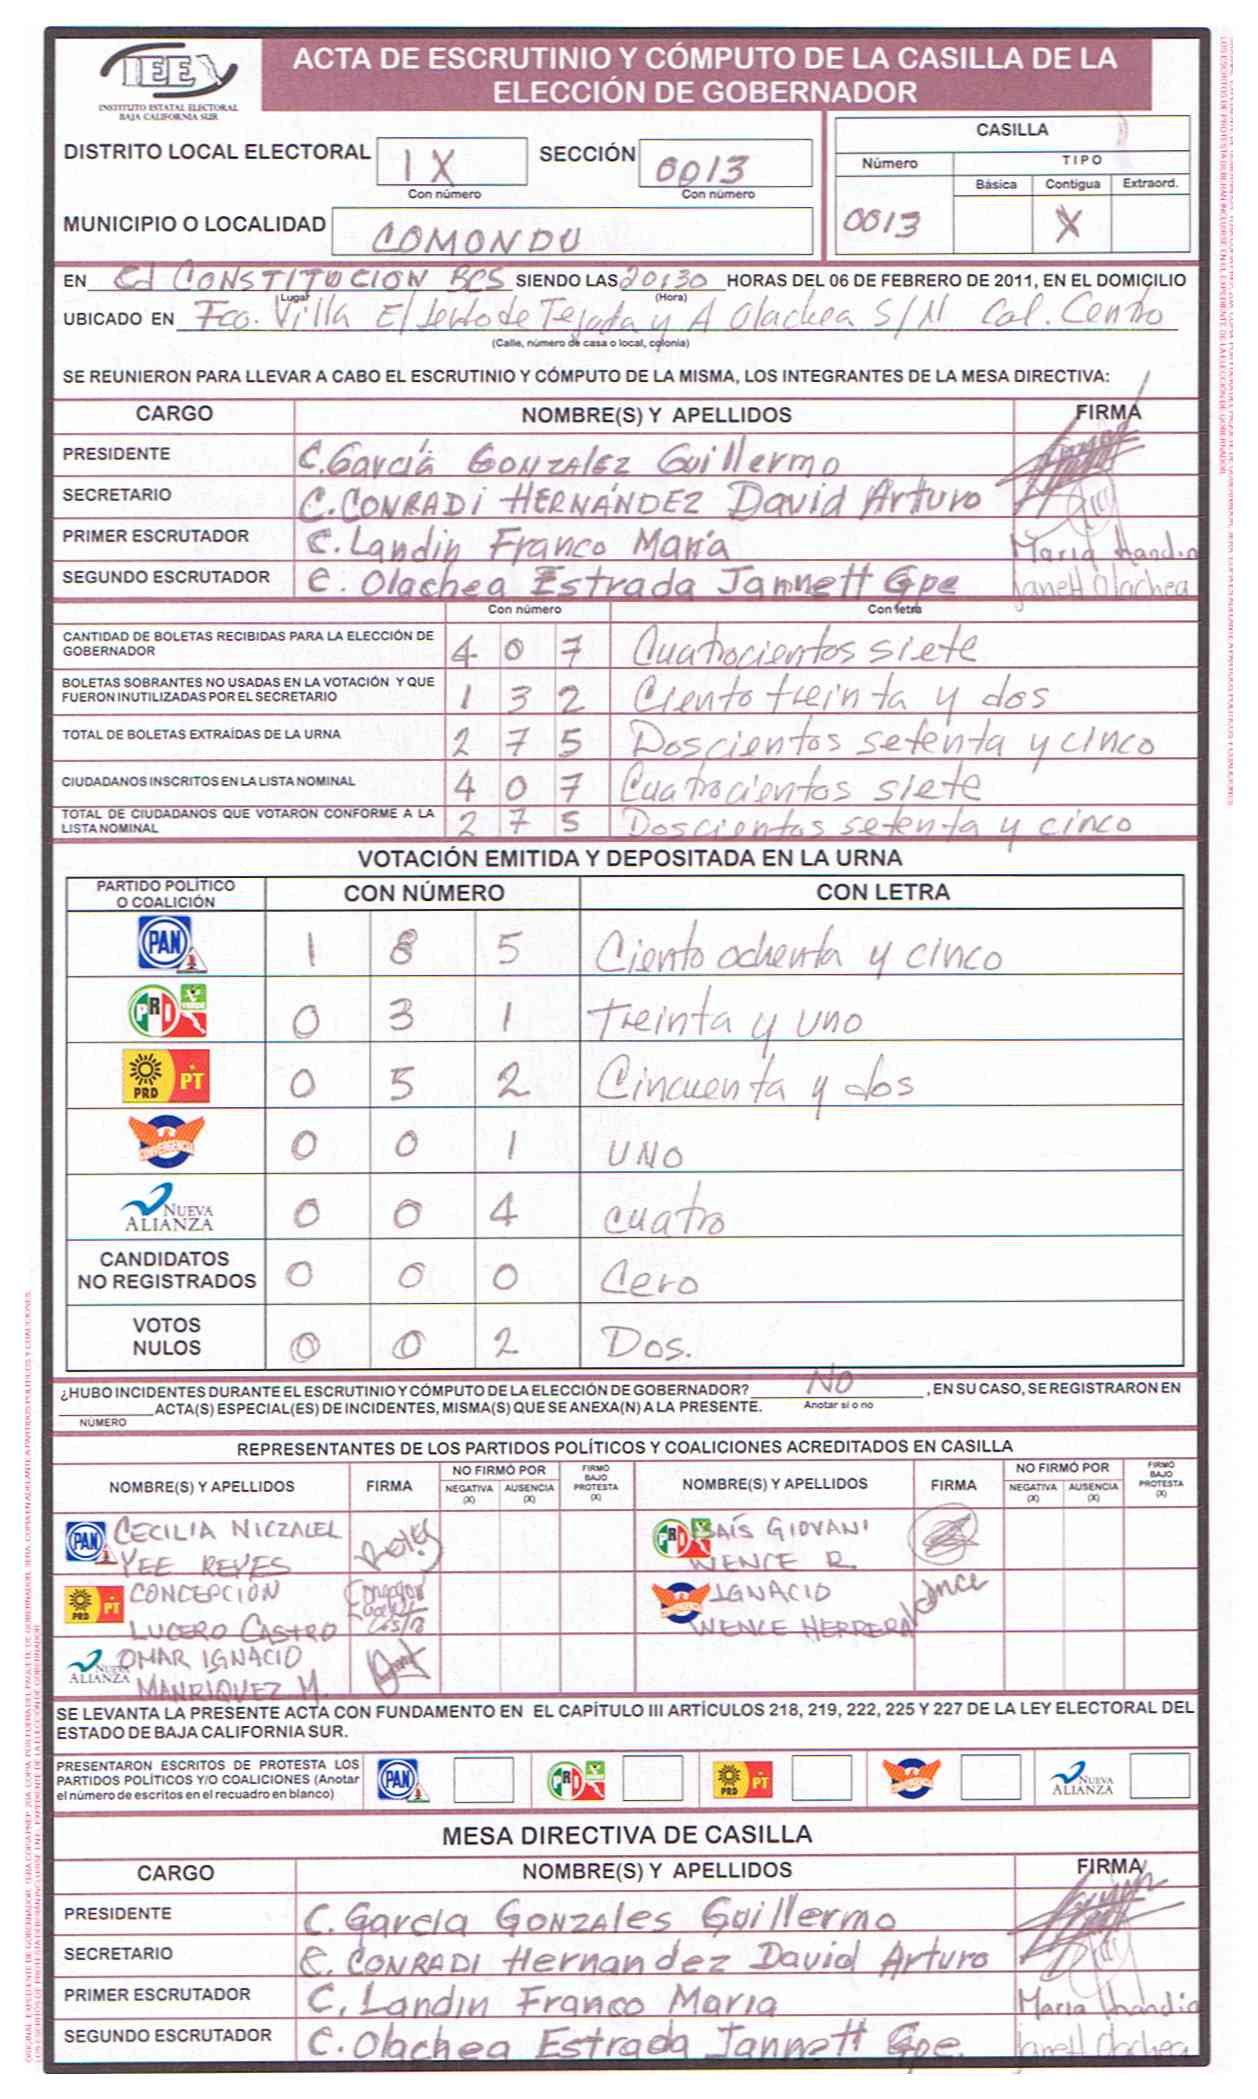 IEE
INSTITUTO ESTATAL ELECTORAL
BAJA CALIFORNIA SUR
ACTA DE ESCRUTINIO Y CÓMPUTO DE LA CASILLA DE LA
ELECCIÓN DE GOBERNADOR
DISTRITO LOCAL ELECTORAL IX SECCIÓN 0013
Con número Con número
MUNICIPIO O LOCALIDAD COMONDU
CASILLA
Número TIPO
Básica Contigua Extraord.
0013 X
EN Cd CONSTITUCION BCS SIENDO LAS 20:30 HORAS DEL 06 DE FEBRERO DE 2011, EN EL DOMICILIO
Lugar (Hora)
UBICADO EN Fco. Villa E/ Lerdo de Tejada y A Olachea S/N Col. Centro
(Calle, número de casa o local, colonia)
SE REUNIERON PARA LLEVAR A CABO EL ESCRUTINIO Y CÓMPUTO DE LA MISMA, LOS INTEGRANTES DE LA MESA DIRECTIVA:
CARGO NOMBRE(S) Y APELLIDOS FIRMA
PRESIDENTE C. García GONZALEZ Guillermo
SECRETARIO C. CONRADI HERNÁNDEZ David Arturo
PRIMER ESCRUTADOR C. Landin Franco María Maria Landin
SEGUNDO ESCRUTADOR C. Olachea Estrada Jannett Gpe Janett Olachea
Con número Con letra
CANTIDAD DE BOLETAS RECIBIDAS PARA LA ELECCIÓN DE
GOBERNADOR 4 0 7 Cuatrocientos siete
BOLETAS SOBRANTES NO USADAS EN LA VOTACIÓN Y QUE
FUERON INUTILIZADAS POR EL SECRETARIO 1 3 2 Ciento treinta y dos
TOTAL DE BOLETAS EXTRAÍDAS DE LA URNA 2 7 5 Doscientos setenta y cinco
CIUDADANOS INSCRITOS EN LA LISTA NOMINAL 4 0 7 Cuatrocientos siete
TOTAL DE CIUDADANOS QUE VOTARON CONFORME A LA
LISTA NOMINAL 2 7 5 Doscientos setenta y cinco
VOTACIÓN EMITIDA Y DEPOSITADA EN LA URNA
PARTIDO POLÍTICO
O COALICIÓN CON NÚMERO CON LETRA
PAN 1 8 5 Ciento ochenta y cinco
PRI VERDE 0 3 1 treinta y uno
PRD PT 0 5 2 Cincuenta y dos
CONVERGENCIA 0 0 1 UNO
NUEVA ALIANZA 0 0 4 cuatro
CANDIDATOS
NO REGISTRADOS 0 0 0 Cero
VOTOS
NULOS 0 0 2 Dos.
¿HUBO INCIDENTES DURANTE EL ESCRUTINIO Y CÓMPUTO DE LA ELECCIÓN DE GOBERNADOR? NO , EN SU CASO, SE REGISTRARON EN
ACTA(S) ESPECIAL(ES) DE INCIDENTES, MISMA(S) QUE SE ANEXA(N) A LA PRESENTE. Anotar si o no
NÚMERO
REPRESENTANTES DE LOS PARTIDOS POLÍTICOS Y COALICIONES ACREDITADOS EN CASILLA
NOMBRE(S) Y APELLIDOS FIRMA NO FIRMÓ POR NEGATIVA (X) AUSENCIA (X) FIRMÓ BAJO PROTESTA (X) NOMBRE(S) Y APELLIDOS FIRMA NO FIRMÓ POR NEGATIVA (X) AUSENCIA (X) FIRMÓ BAJO PROTESTA (X)
PAN CECILIA NICZALEL PRI GIOVANI
YEE REYES WENCE R.
PRD PT CONCEPCION IGNACIO
LUCERO CASTRO WENCE HERRERA
NUEVA ALIANZA OMAR IGNACIO
MANRIQUEZ M.
SE LEVANTA LA PRESENTE ACTA CON FUNDAMENTO EN EL CAPÍTULO III ARTÍCULOS 218, 219, 222, 225 Y 227 DE LA LEY ELECTORAL DEL
ESTADO DE BAJA CALIFORNIA SUR.
PRESENTARON ESCRITOS DE PROTESTA LOS
PARTIDOS POLÍTICOS Y/O COALICIONES (Anotar
el número de escritos en el recuadro en blanco) PAN PRI PRD PT NUEVA ALIANZA
MESA DIRECTIVA DE CASILLA
CARGO NOMBRE(S) Y APELLIDOS FIRMA
PRESIDENTE C. García GONZAles Guillermo
SECRETARIO C. CONRADI Hernandez David Arturo
PRIMER ESCRUTADOR C. Landin Franco Maria Maria Landin
SEGUNDO ESCRUTADOR C. Olachea Estrada Jannett Gpe. Janett Olachea